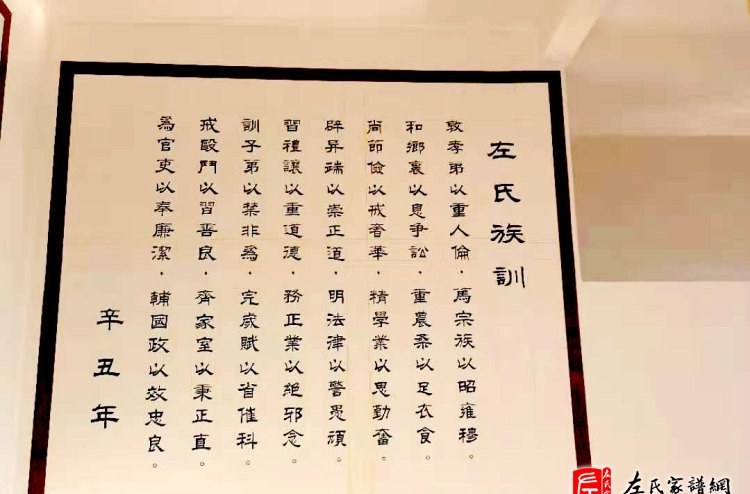 左氏族訓
敦孝弟以重人倫，篤宗族以昭雍穆。
和鄉裏以息爭訟，重農桑以足衣食。
尚節儉以戒奢華，精學業以思勤奮。
辟昇瑞以崇正道，明法律以警愚頑。
習禮讓以重道德，務正業以絕邪念。
訓子弟以禁非為，完歲賦以省催科。
戒毆鬥以習善良，齊家室以秉正直。
為官吏以奉廉潔，輔國政以效忠良。
辛丑年
左氏家譜網